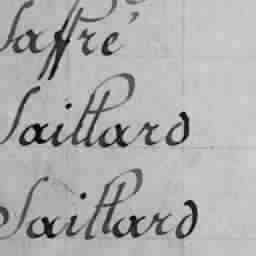 Saffré
Saillard
Saillard